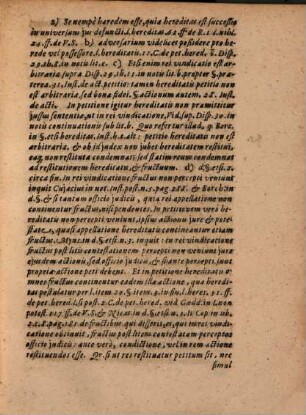 a) Se nempè hæredem esse, quia hereditas est successio
in universum jus defuncti. l. hereditas. 62. ff de R. I. d. nihil.
24. ff. de V. S. b) adversarium videlicet possidere pro he-
rede vel possessore. l. hereditatem. 11. C. de pet. hered. v. Disp.
29. th. 8. in notis lit. x. c) Etsi enim rei vindicatio est ar-
bitraria supra Disp. 29. th. 11. in notis lit. b. propter §. præ-
terea. 31. Inst. de act. petitio tamen hereditatis petitio non
est arbitraria, sed bona fidei, §. actionum autem. 28. Inst.
de acti. In petitione igitur hereditatis non præmittitur
jussus sententia, ut in rei vindicatione, Vid. sup. Disp. 30. in
notis continuationis sub lit. b. Quo refertur illud, q. Borc.
in §. etsi hereditas. inst. h. 8. alt: petitio hereditatis non est
arbitraria, & ob id judex non jubet hereditatem restitui,
eaq. non restituta condemnat: sed statim reum condemnat
ad restitutionem hereditatis, & fructuum. d) §. etsi. 2.
circa fin. in rei vindicatione fructus non percepti veniunt
inquit Cujacius in not. Inst. post. n. 5. pag. 288. & Borch. in
d. §. & si tantum officio judicis, quia rei appellatione non
continentur fructus, nisi pendentes. In petitione verò he-
reditatis non percepti veniunt, ipso actionis jure & pote-
state, quasi appellatione hereditatis contineantur etiam
fructus. Myns. in d. §. etsi. n. 3. quia verò in rei vindicatione
fructus post litis contestationem percepti veniunt in
ejusdem actione, sed officio judicis, & stante percepti, sunt
propriæ actione peti debent. Et in petitione hereditatis
omnes fructus continentur eadem illa actione, qua heredi-
tas postulatur per l. item. 20. §. item. 3. in fin. l. heres. 51. ff.
de pet. hered. l. si post. 2. C. de pet. hered. vid Godd. in l. non
potest. 215. ff. de V. S. & Nicas. in d. §. etsi. n. 3. et Cop. in ub.
2. l. 8. pag. 187. de fructibus qui disserit, qui in rei vindi-
catione obtinuit, fructus post litem contestatam perceptos
officio judicis: ante verò, condictione, vel in rem actione
restituendos esse. Qr. si ut rei restituatur petitum sit, nec
simul